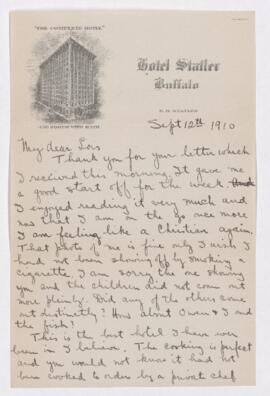 "THE COMPLETE HOTEL"
Hotel Statler
Buffalo
E. M. STATLER
"450 ROOMS WITH BATH"
Sept 12th 1910
My dear Lois
Thank you for your letter which
I received this morning. It gave me
a good start off for the week.
I enjoyed reading it very much and
now that I am on the go once more
I am feeling like a Christian again.
That photo of me is fine only I wish I
had not been showing off by smoking a
cigarette. I am sorry the one showing
you and the children did not come out
more plainly. Did any of the others come
out distinctly? How about Owen & I and
the fish?
This is the best hotel I have ever
been in I believe. The cooking is perfect
and you would not know it had not
been cooked to order by a private chef